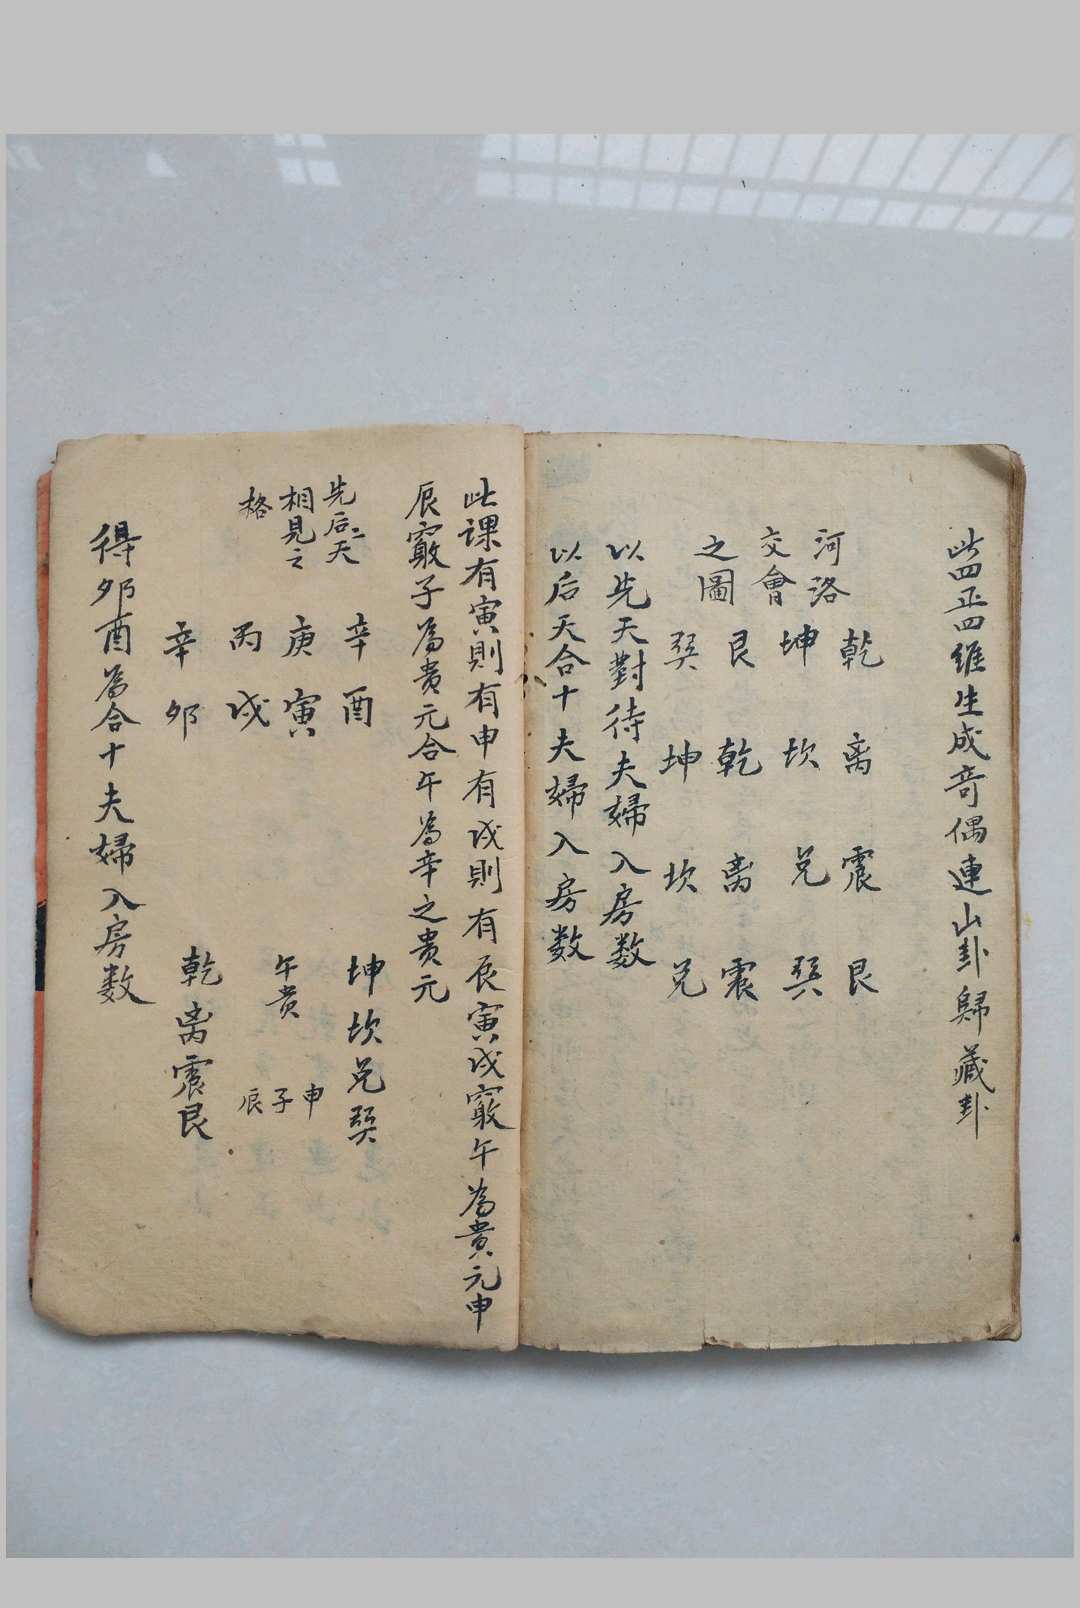 此四正四維生成奇偶連山卦歸藏卦
河洛
交會
之圖
乾 离 震 艮
坤 坎 兑 巽
艮 乾 离 震
巽 坤 坎 兑
以先天對待夫婦入房数
以后天合十夫婦入房数
此課有寅則有申有戌則有辰寅戌竅午為貴元申
辰竅子為贵元合午為辛之贵元
先后二天
相見之
格
辛酉 坤坎兑巽
庚寅 午贵 申
丙戌 子
辛卯 辰
乾离震艮
得卯酉為合十夫婦入房数